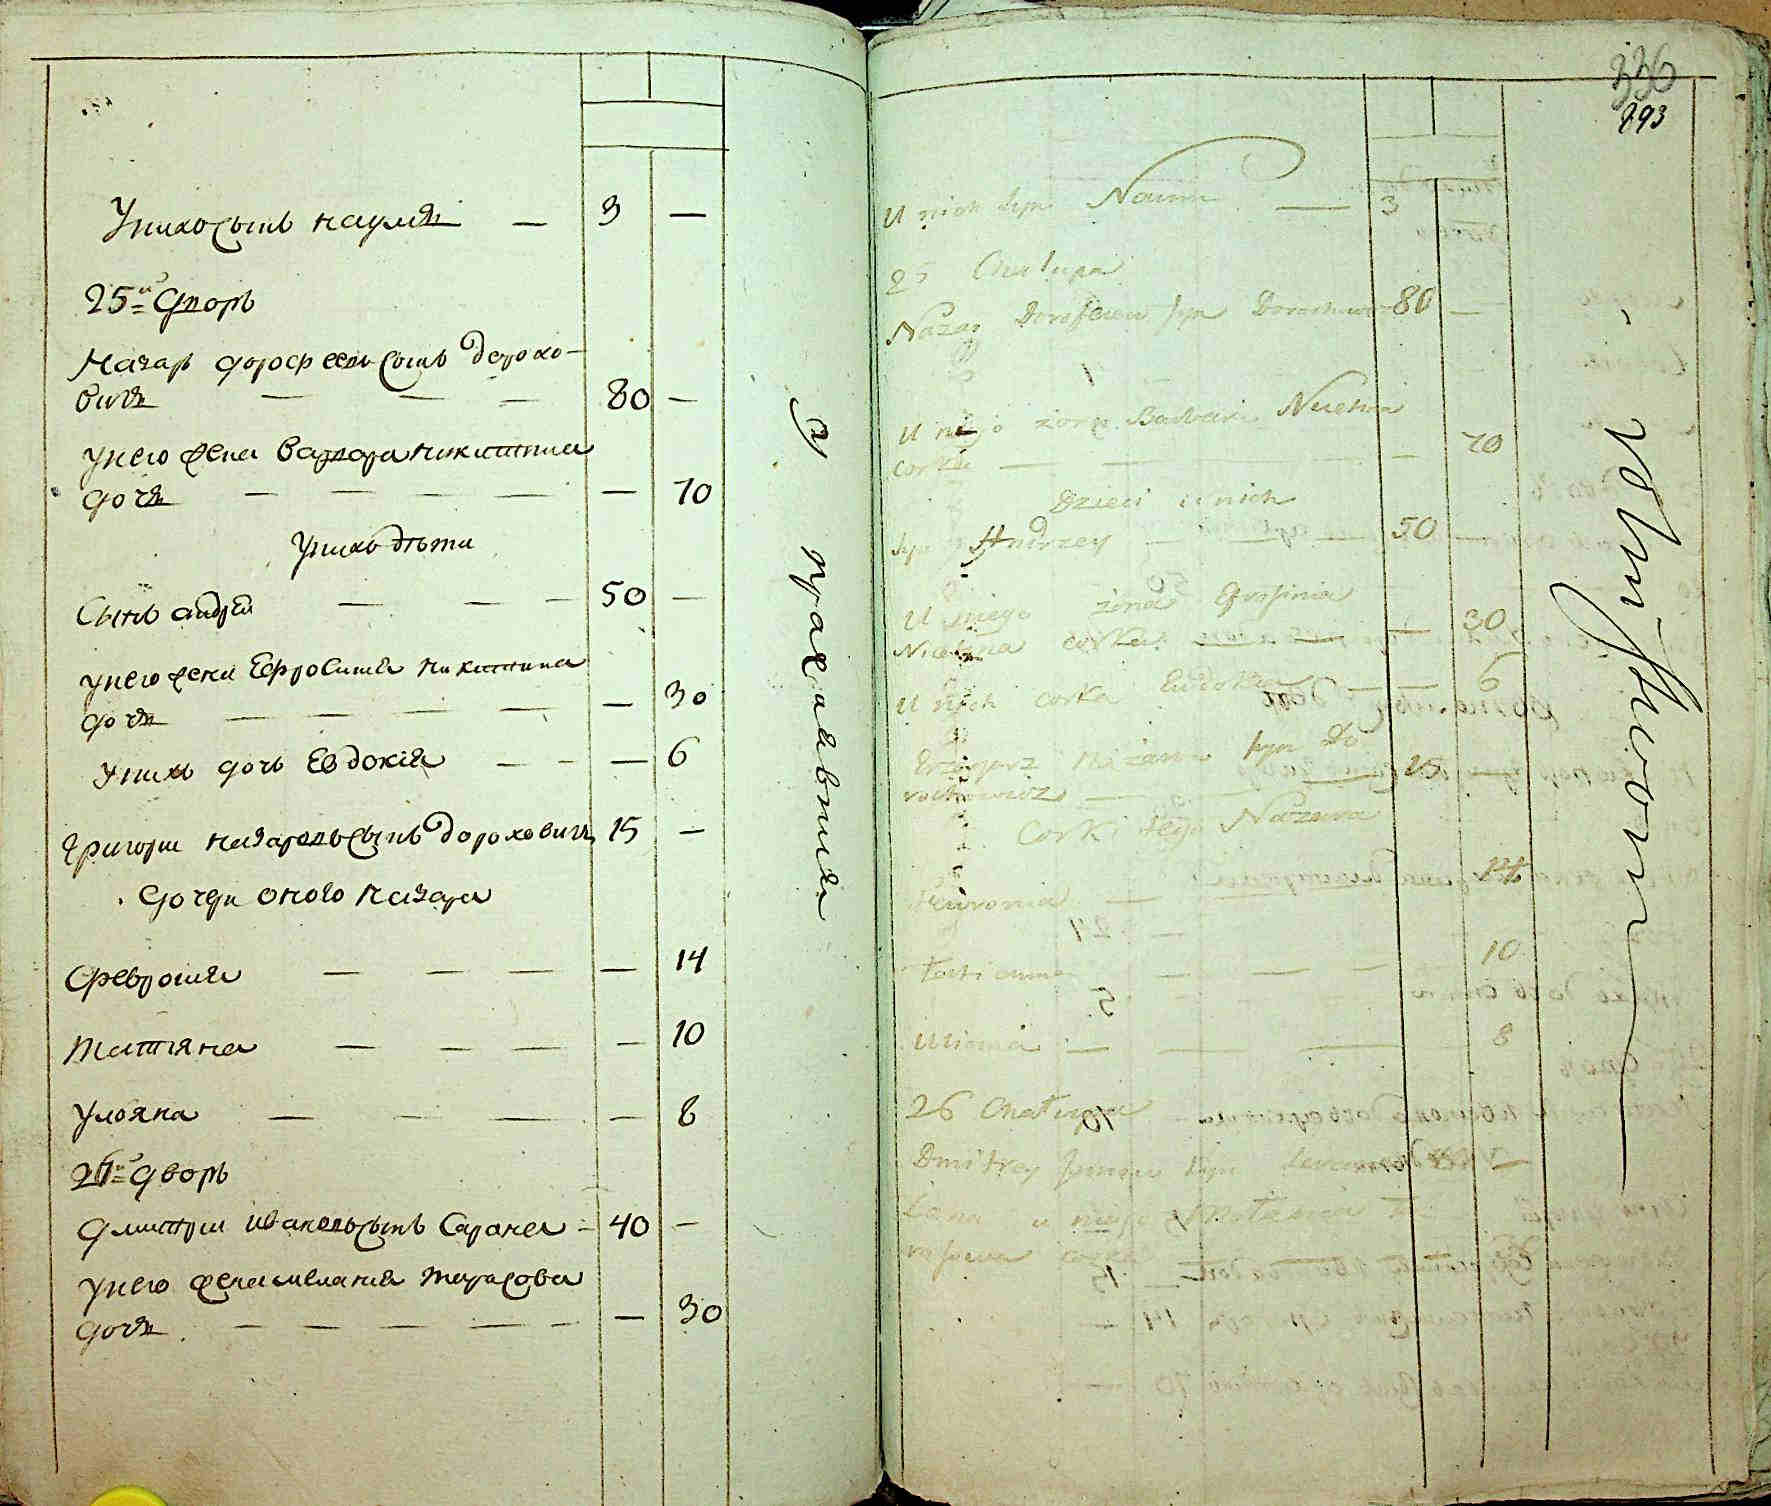 Унихъ сынъ наумъ — 3 —
25й дворъ
Назаръ дорофеевъ сынъ дорохо-
вичъ — — — 80 —
унего жена варвара никитина
дочь — — — — — 70
Унихъ дѣти
Сынъ андрей — — — 50 —
унего жена Ефросиния никитина
дочь — — — — — 30
унихъ дочь Евдокія — — — 6
григори назаровъ сынъ дороховичъ 15 —
дочери оного назара
Феврония — — — — 14
татіяна — — — — 10
Улияна — — — — 8
26й дворъ
дмитри ивановъ сынъ Сарана — 40 —
унего жена мелания тарасова
дочь — — — — — — 30
336
293
U nich syn Naum — 3
25 Chałupa
Nazar Dorofeiew syn Dorochowicz 80 —
U niego żona Barbara Nikitina
corka — — — 70
Dzieci u nich
syn Andrzey — — — 50 —
U niego żona Efrosinia
Nikitina corka — — — 30
U nich corka Eudokia — — 6
Grzegorz Nazarow syn Do
rochowicz — — 15 —
Corki tego Nazara
Fewronia — — 14
Tatianna — — — 10
Uliana — — — 8
26 Chałupa
Dmitrey syn
Żona u niego
corka